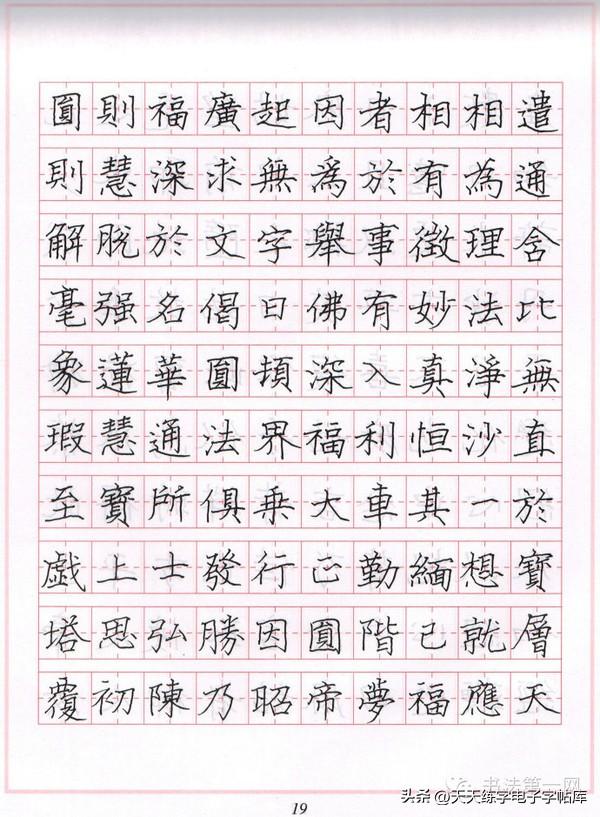 圓則福廣起因者相相遣
則慧深求無為於有為通
解脫於文字舉事徵理含
毫强名偈曰佛有妙法比
象蓮華圓頓深入真淨無
瑕慧通法界福利恒沙直
至寶所俱乘大車其一於
戲上士發行正勤緬想寶
塔思弘勝因圓階已就層
覆初陳乃昭帝夢福應天
书法第一网
头条@天天练字电子字帖库
19